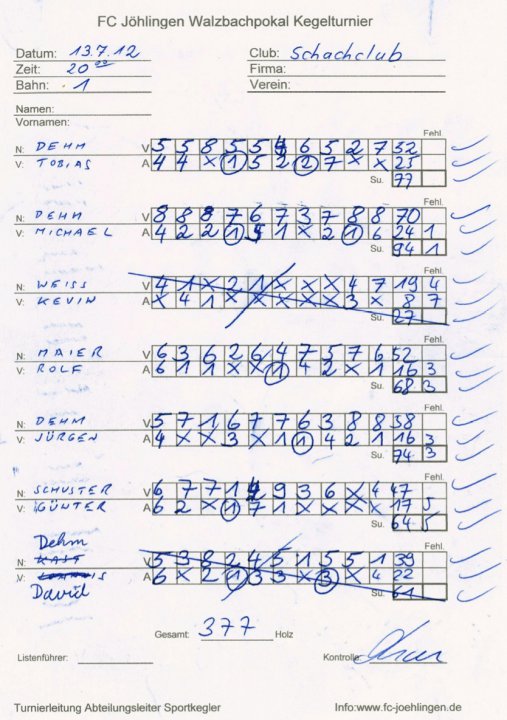 FC Jöhlingen Walzbachpokal Kegelturnier
Datum: 13.7.12 Club: Schachclub
Zeit: 20 00 Firma:
Bahn: 1 Verein:
Namen:
Vornamen:
Fehl.
N: DEHM V 5 5 8 5 5 4 6 5 2 7 52
V: TOBIAS A 4 4 x 1 5 2 2 7 x x 25
Su. 77
Fehl.
N: DEHM V 8 8 8 7 6 7 3 7 8 8 70
V: MICHAEL A 4 2 2 1 5 1 x 2 1 6 24 1
Su. 94 1
Fehl.
N: WEISS V 4 1 x 2 1 x x x 4 7 19 4
V: KEVIN A x 4 1 x x x x x 3 x 8 7
Su. 27
Fehl.
N: MAIER V 6 3 6 2 6 4 7 5 7 6 52
V: ROLF A 6 1 1 x x 1 4 2 x 1 16 3
Su. 68 3
Fehl.
N: DEHM V 5 7 1 6 7 7 6 3 8 8 58
V: JÜRGEN A 4 x x 3 x 1 1 4 2 1 16 3
Su. 74 3
Fehl.
N: SCHUSTER V 6 7 7 1 4 9 3 6 x 4 47
V: GÜNTER A 6 2 x 1 7 1 x x x x 17 5
Su. 64 5
Dehm
Fehl.
N: V 5 3 8 2 4 5 1 5 5 1 39
V: A 6 x 2 1 3 3 x 3 x 4 22
David Su. 61
Gesamt: 377 Holz
Listenführer: Kontrolle:
Turnierleitung Abteilungsleiter Sportkegler Info:www.fc-joehlingen.de